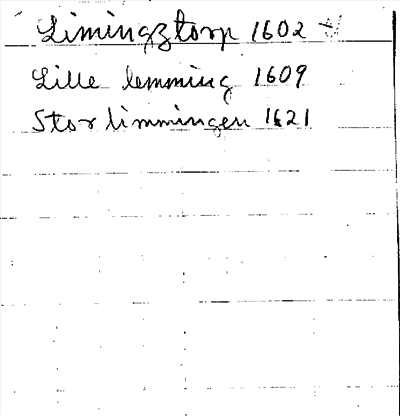 Limingztorp 1602
Lille lemming 1609
Stor limmingen 1621